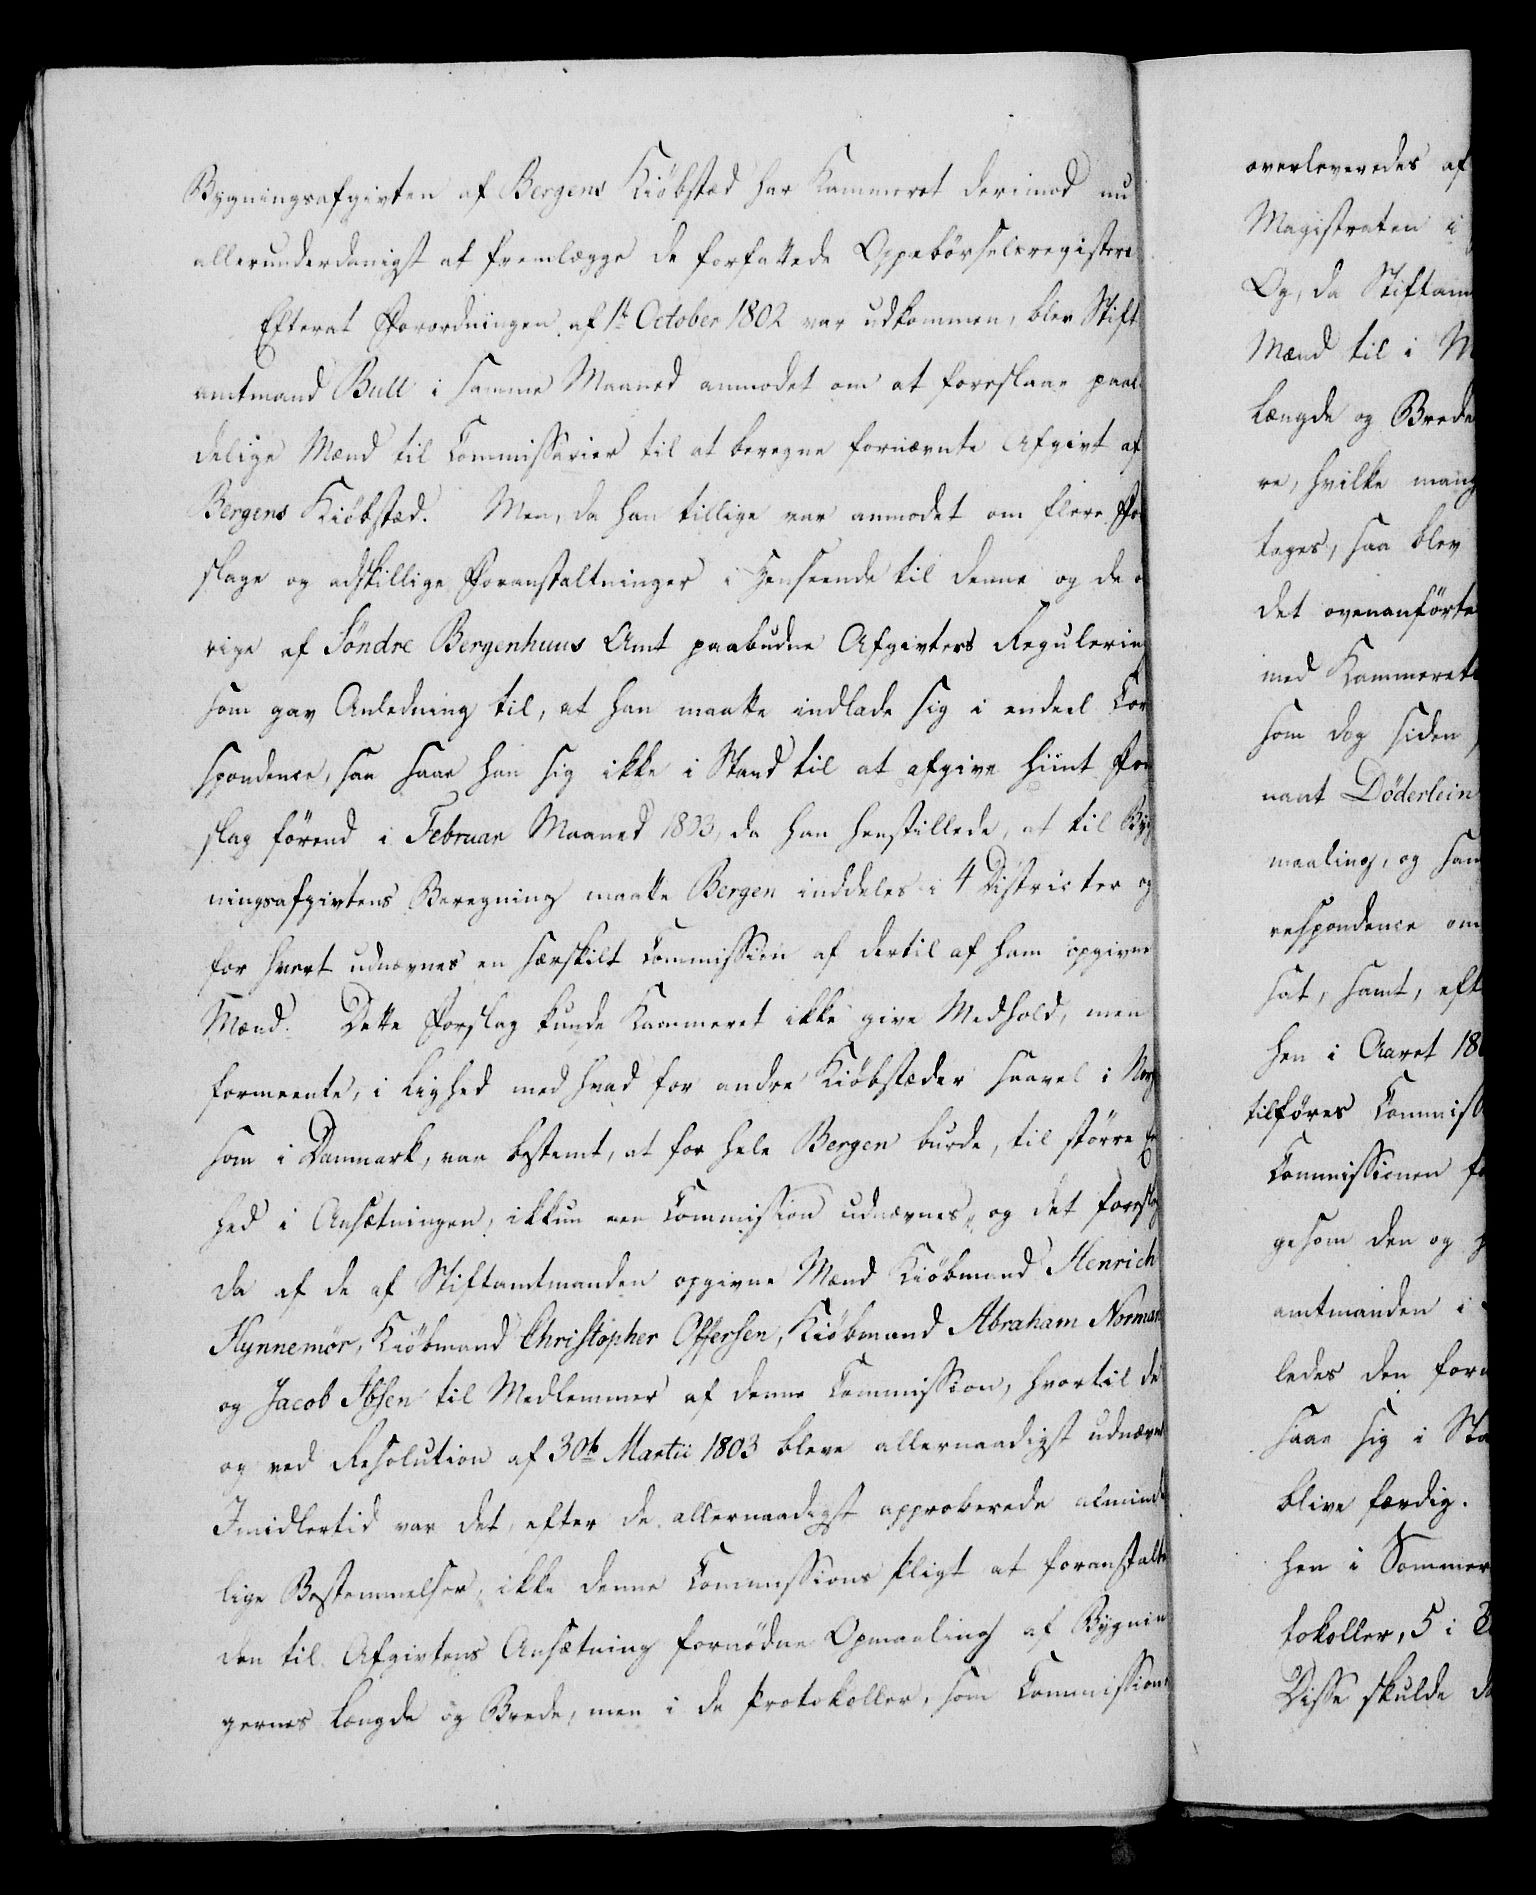 Bygningsafgivten af Bergens Kiöbstæd har Kammeret derimod nu
allerunderdanigst at fremlægge de forfattede Oppebörselsregistere
Efterat Forordningen af 1t October 1802 var udkommen, blev Stift
amtmand Bull i samme Maaned anmodet om at foreslaae paae
delige Mænd til Commissairer til at beregne fornævnte Afgivt af
Bergens Kiöbstæd. Men, da han tillige var anmodet om flere For
slage og adskillige Foranstaltninger i Henseende til denne og de ö
rige af Söndre Bergenhuus Amt paabudne Afgivters Regulering
som gav Anledning til, at han maatte indlade sig i endeel Cor
spondence, saa saae han sig ikke i Stand til at afgive hiint For
slag förend i Februar Maaned 1803, da han henstillede, at til Byg
ningsafgivtens Beregning maatte Bergen inddeles i 4 Districter og
for hvert udnævnes en særskilt Commission af dertil af ham opgivne
Mænd. Dette Forslag kunde Kammeret ikke give Medhold, men
formeente, i Lighed med hvad for andre Kiöbstæder saavel i Norg
som i Danmark, var bestemt, at for hele Bergen burde, til större E
hed i Ansætningen, ikkun een Commission udnævnes, og det foreslog
da af de af Stiftamtmanden opgivne Mænd Kiöbmand Henrich
Hynnemör, Kiöbmand Christopher Offersen, Kiöbmand Abraham Norman
og Jacob Ibsen til Medlemmer af denne Commission, hvortil de
og ved Resolution af 30te Martii 1803 bleve allernaadigst udnævnt
Imidlertid var det, efter de allernaadigst approberede almind
lige Bestemmelser, ikke denne Commissions Pligt at foranstalte
den til Afgivtens Ansætning fornödne Opmaaling af Bygnin
gernes Længde og Brede, men i de Protokoller, som Commission
overleveredes af
Magistraten i
Og, da Stiftam
Mænd til i M
Længde og Brede
re, hvilke mang
toges, saa blev
det ovenanförte
med Kammerets
som dog siden
nant Döderlein
maaling, og ham
respondence om
sat, samt, eft
hen i Aaret 18
tilföres Commiss
Commissionen fo
gesom den og
amtmanden i
ledes den forn
saae sig i Sta
blive færdig.
hen i Sommer
tokoller, 5 i
Disse skulde d